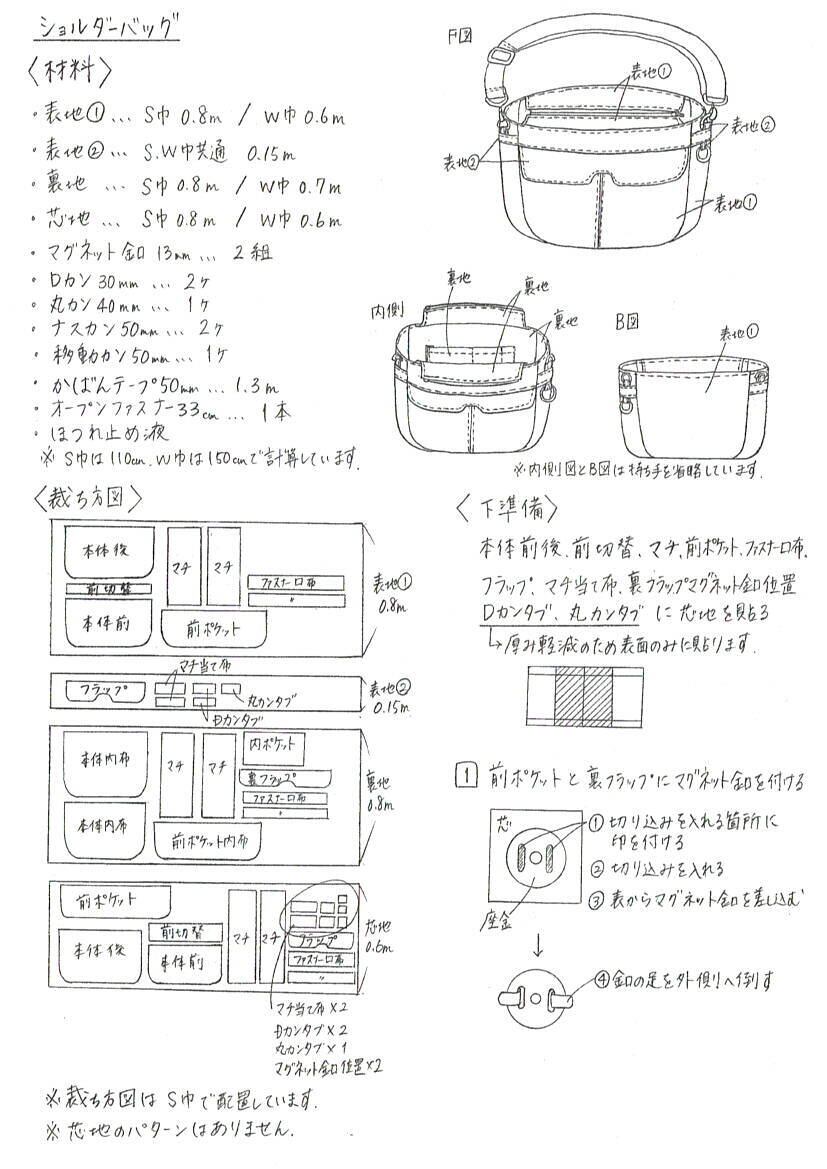 ショルダーバッグ
〈材料〉
・表地① … S巾 0.8m / W巾 0.6m
・表地② … S.W巾共通 0.15m
・裏地 … S巾 0.8m / W巾 0.7m
・芯地 … S巾 0.8m / W巾 0.6m
・マグネット釦 13mm … 2組
・Dカン 30mm … 2ヶ
・丸カン 40mm … 1ヶ
・ナスカン 50mm … 2ヶ
・移動カン 50mm … 1ヶ
・かばんテープ 50mm … 1.3m
・オープンファスナー 33cm … 1本
・ほつれ止め液
※ S巾は110cm、W巾は150cmで計算しています。
F図
表地①
表地②
表地②
表地①
内側
裏地
裏地
裏地
B図
表地①
※内側図とB図は持ち手を省略しています。
〈裁ち方図〉
本体後
前切替
本体前
マチ
マチ
前ポケット
ファスナー口布
〃
表地①
0.8m
マチ当て布
フラップ
丸カンタブ
Dカンタブ
表地②
0.15m
本体内布
本体内布
マチ
マチ
前ポケット内布
内ポケット
裏フラップ
ファスナー口布
〃
裏地
0.8m
前ポケット
本体後
前切替
本体前
マチ
マチ
フラップ
ファスナー口布
〃
芯地
0.6m
マチ当て布×2
Dカンタブ×2
丸カンタブ×1
マグネット釦位置×2
※裁ち方図は S巾で配置しています。
※芯地のパターンはありません。
〈下準備〉
本体前後、前切替、マチ、前ポケット、ファスナー口布、
フラップ、マチ当て布、裏フラップマグネット釦位置
Dカンタブ、丸カンタブ に芯地を貼る
↳厚み軽減のため表面のみに貼ります。
1 前ポケットと裏フラップにマグネット釦を付ける
芯
座金
①切り込みを入れる箇所に
印を付ける
②切り込みを入れる
③表からマグネット釦を差し込む
↓
④釦の足を外側へ倒す